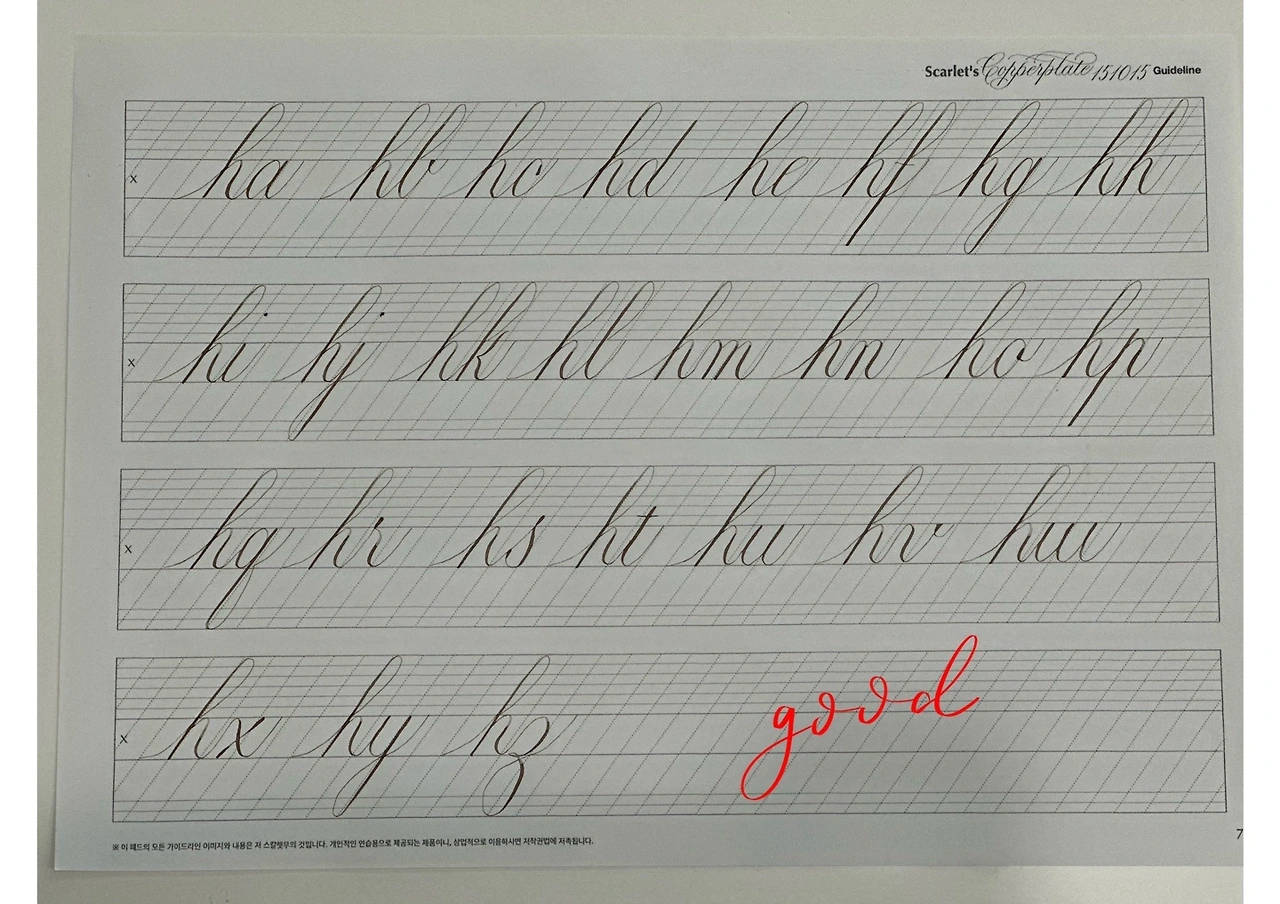 Scarlet's Copperplate 151015 Guideline
ha hb hc hd he hf hg hh
x
hi hj hk hl hm hn ho hp
x
hq hr hs ht hu hv hw
x
hx hy hz good
x
7
※ 이 패드의 모든 가이드라인 이미지와 내용은 저 스칼렛우의 것입니다. 개인적인 연습용으로 제공되는 제품이니, 상업적으로 이용하시면 저작권법에 저촉됩니다.